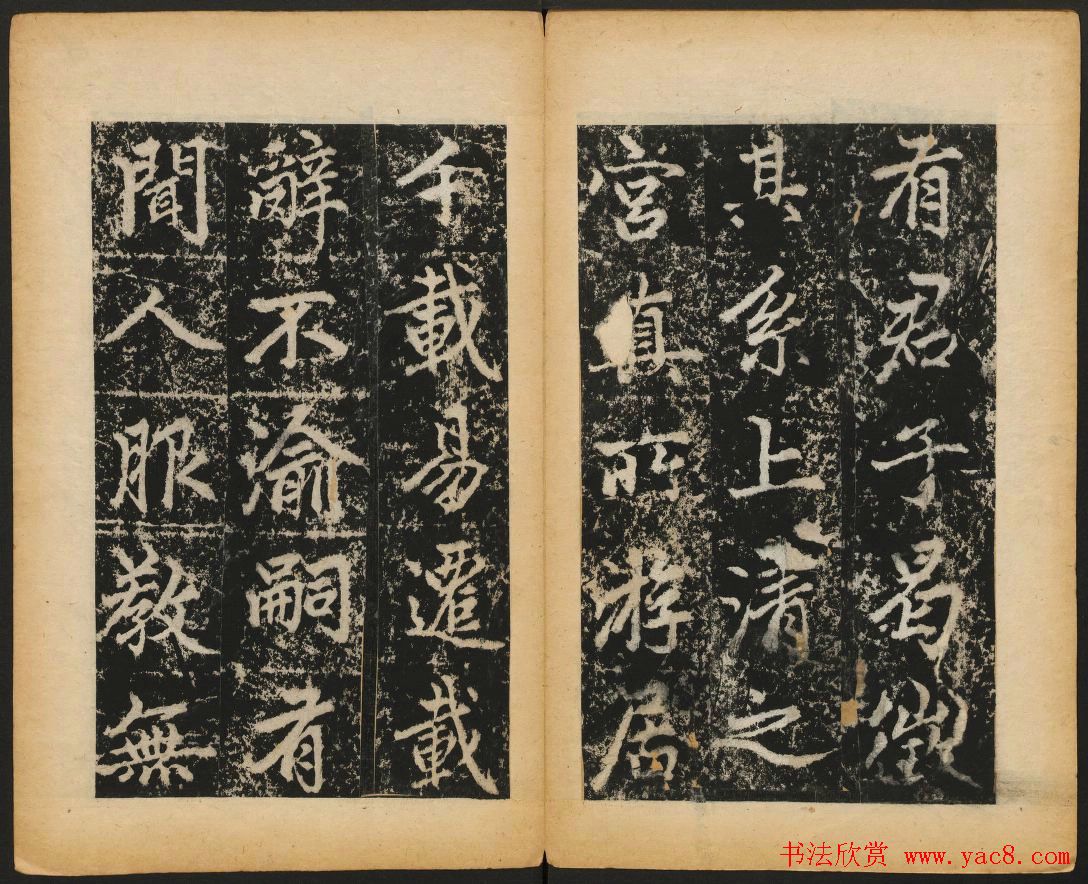 有君子曷徵
其系上清之
宫真所游居
千載易遷載
辭不渝嗣有
聞人服教無
书法欣赏 www.yac8.com